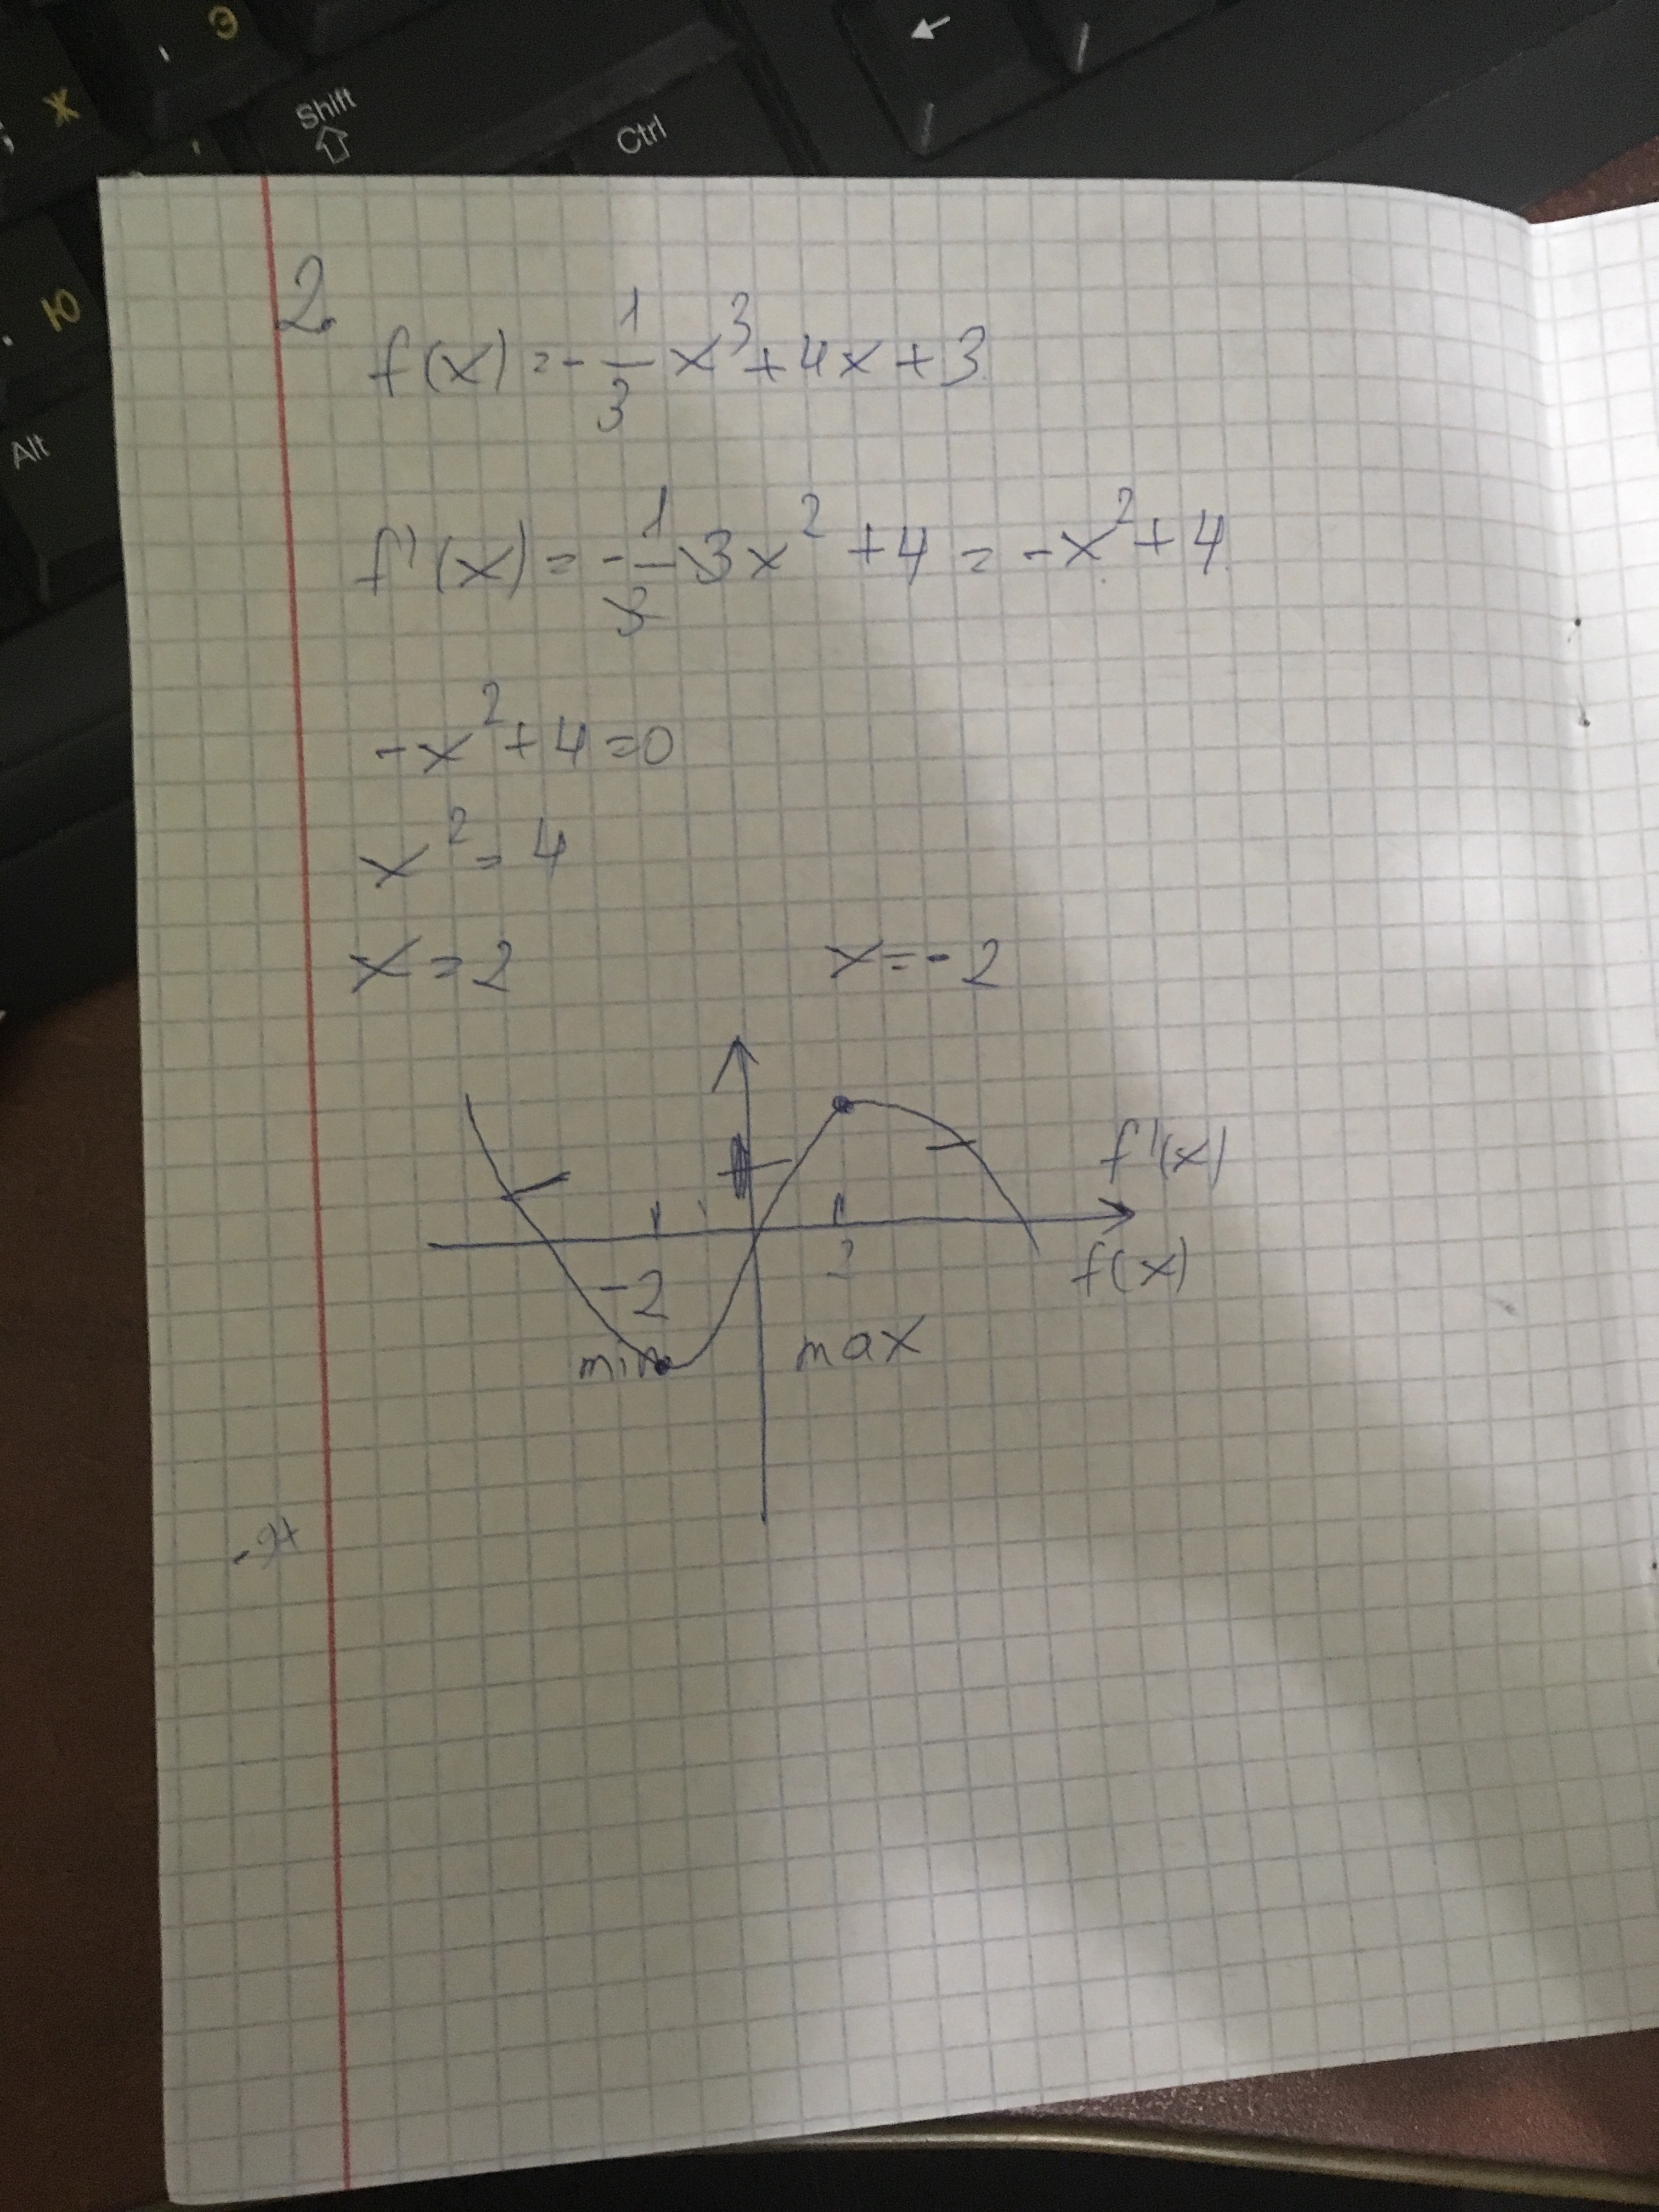 Э
Ж
Shift
Ctrl
Ю
Alt
2.
f(x) = - 1/3 x³ + 4x + 3
f'(x) = - 1/3 3x² + 4 = -x² + 4
-x² + 4 = 0
x² = 4
x = 2 x = -2
f'(x)
-2 2 f(x)
min max